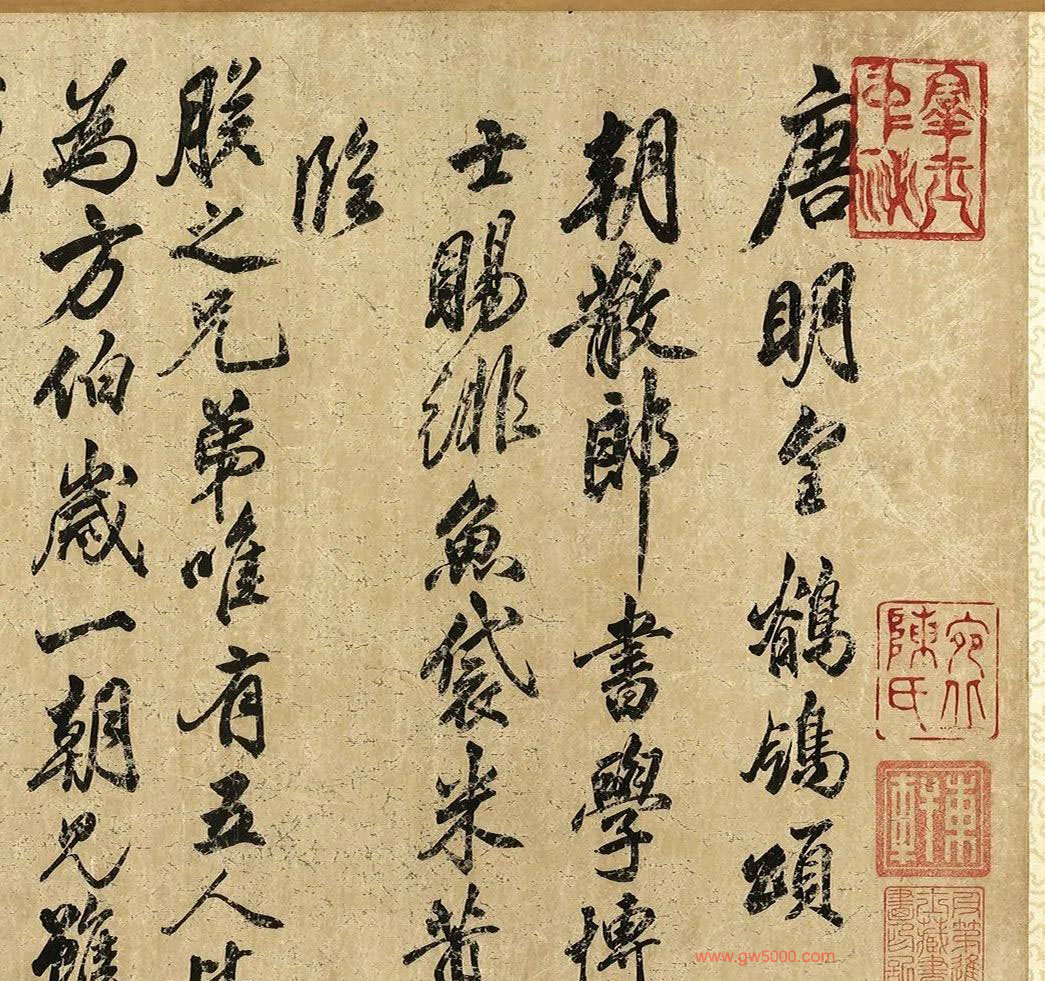 唐明皇鶺鴒頌
朝散郎書學博
士賜緋魚袋米黄
臨
朕之兄弟唯有五人比
為方伯歲一朝見雖
宛平
陳氏
www.gw5000.com